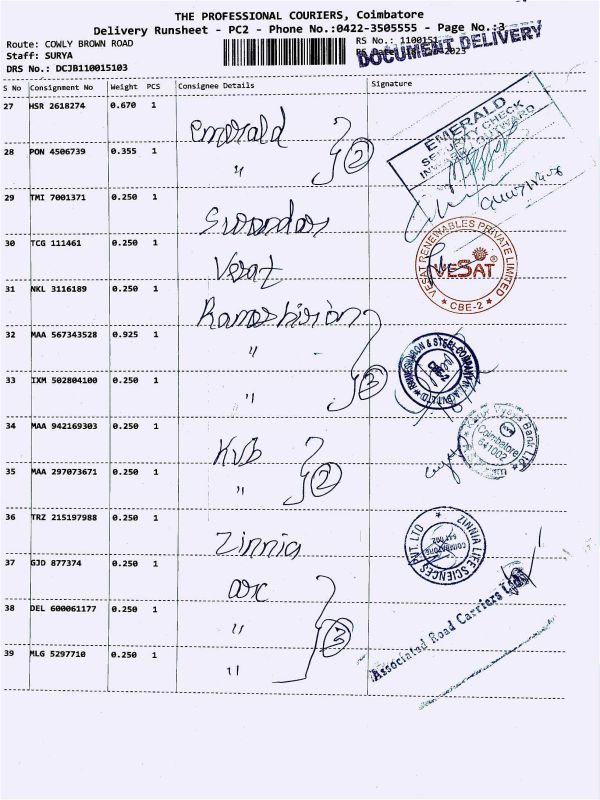 THE PROFESSIONAL COURIERS, Coimbatore
Delivery Runsheet - PC2 - Phone No.:0422-3505555 - Page No.:3
Route: COWLY BROWN ROAD
RS No.: 1100151
Staff: SURYA
DOCUMENT DELIVERY
DRS No.: DCJB110015103
S No Consignment No Weight PCS Consignee Details Signature
27 HSR 2618274 0.670 1 Emerald
28 PON 4506739 0.355 1 " 2
EMERALD
SECURITY CHECK
29 TMI 7001371 0.250 1
30 TCG 111461 0.250 1 Vesat
VESAT RENEWABLES PRIVATE LIMITED
VESAT
CBE-2
31 NKL 3116189 0.250 1
32 MAA 567343528 0.925 1 "
33 IXM 502804100 0.250 1 " 3
34 MAA 942169303 0.250 1 Kvb
Karur Vysya Bank Ltd
Coimbatore
641002
35 MAA 297073671 0.250 1 " 2
36 TRZ 215197988 0.250 1 Zinnia
ZINNIA LIFE SCIENCES PVT. LTD
COIMBATORE
641 002
37 GJD 877374 0.250 1 arc
38 DEL 600061177 0.250 1 "
39 MLG 5297710 0.250 1 " 3
Associated Road Carriers Ltd